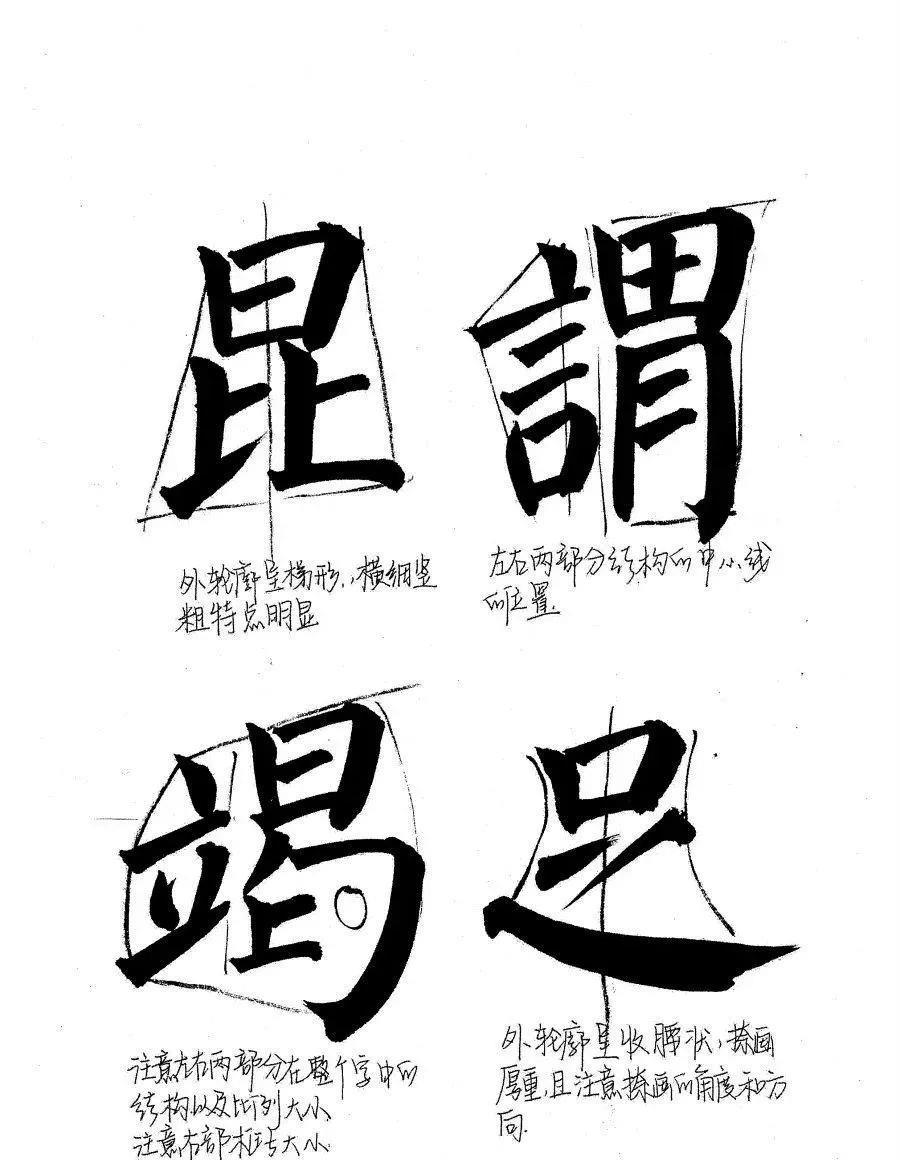 昆
外轮廓呈梯形，横细竖
粗特点明显
謂
左右两部分结构的中心线
的位置.
竭
注意左右两部分在整个字中的
结构以及比例大小
注意右部框与大小
足
外轮廓呈收腰状，捺画
厚重，且注意捺画的角度和方
向.